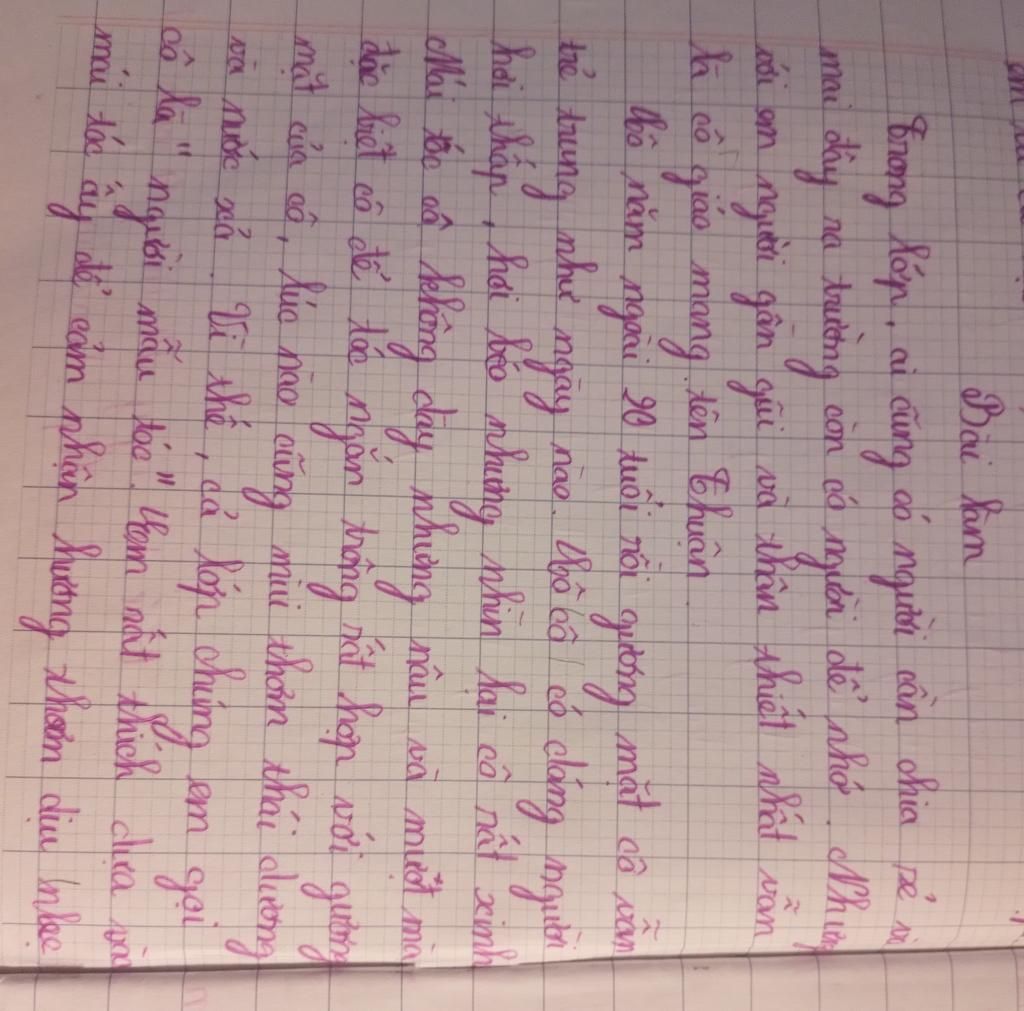 Bài làm
Trong lớp, ai cũng có người cần chia rẻ và
mai đây ra trường còn có người để nhớ. Nhưng
với em người gần gũi và thân thiết nhất vẫn
là cô giáo mang tên Thuận.
Cô năm ngoái 20 tuổi rồi gương mặt cô vẫn
trẻ trung như ngày nào. Cô có dáng người
hơi thấp, hơi béo nhưng nhìn lại cô rất xinh
Mái tóc cô không dày nhưng nâu và mượt mà
đặc biệt cô để tóc ngắn trông rất hợp với gương
mặt của cô, lúc nào cũng mùi thơm thái dương
và nước xả. Vì thế, cả lớp chúng em gọi
cô là "người mẫu tóc". Chúng rất thích dựa vào
mái tóc ấy để cảm nhận hương thơm dịu nhẹ